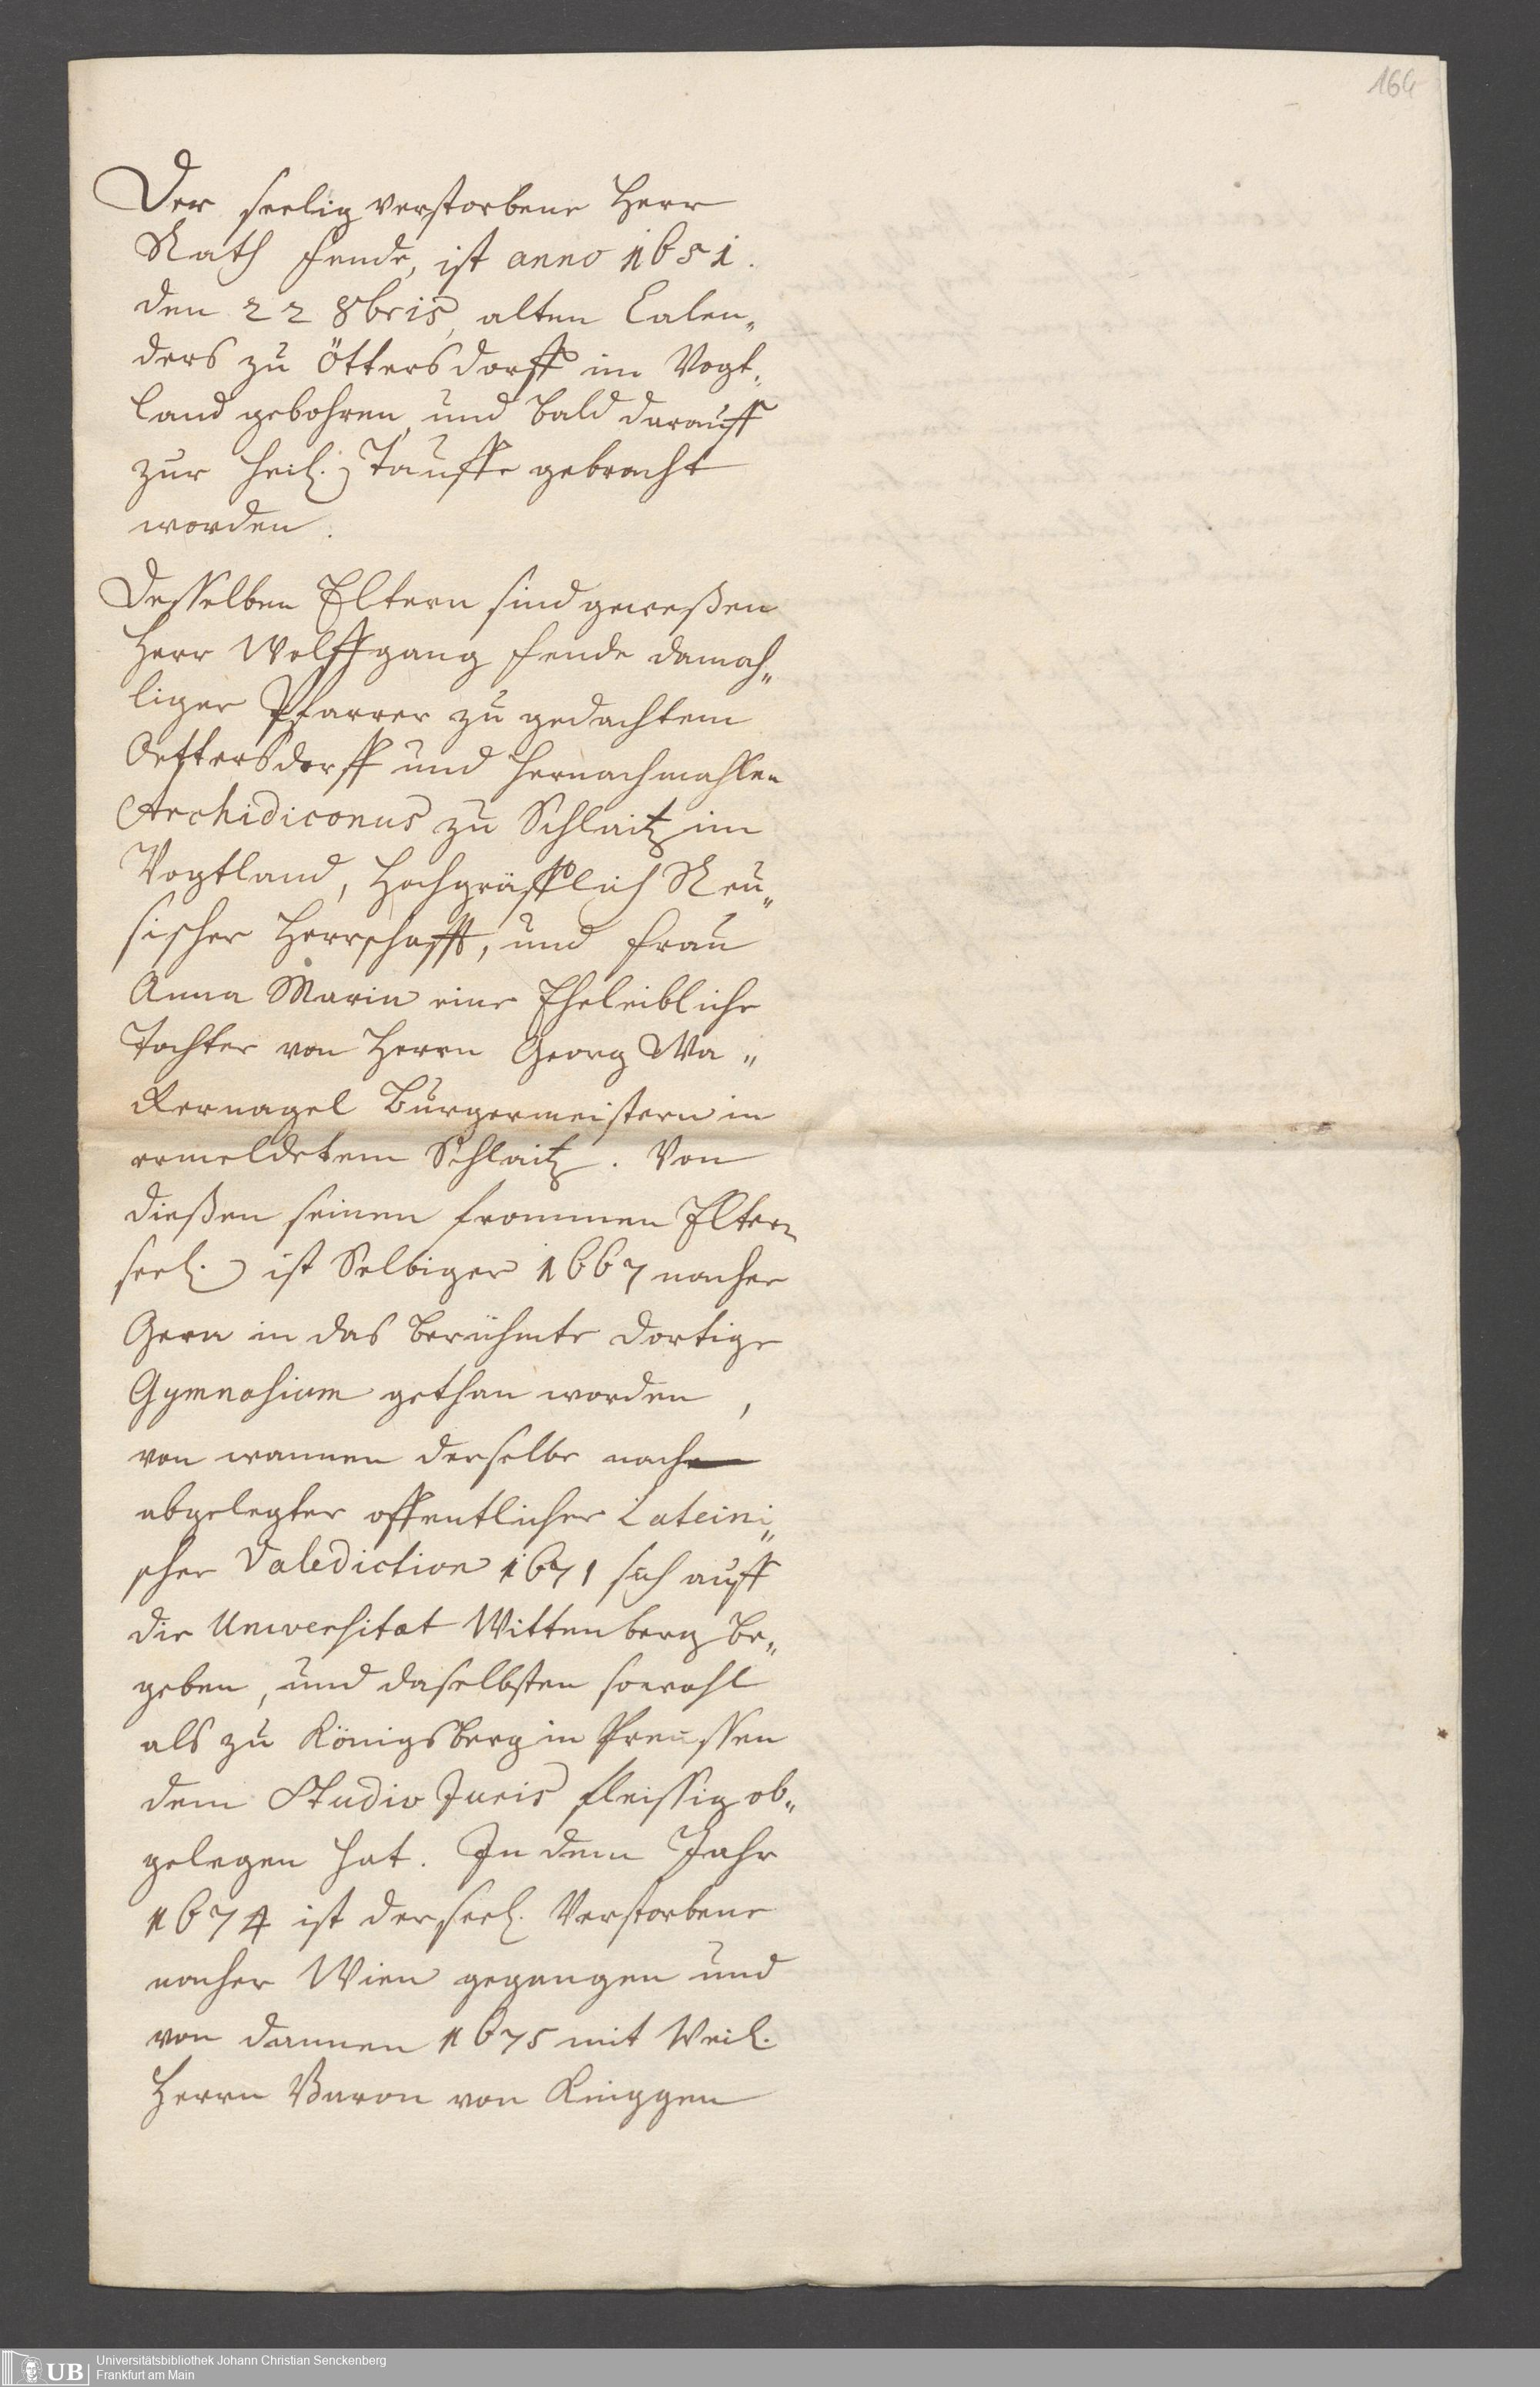 164
Der seelig verstorbene Herr
Rath Fende, ist anno 1651.
den 22 8bris, alten Calen„
ders zu Öttersdorff im Vogt„
land gebohren, und bald darauff
zur heil. Tauffe gebracht
worden.
Desselben Eltern sind geweßen
Herr Wolffgang Fende damah„
liger Pfarrer zu gedachtem
Oettersdorff und hernachmahlen
Archidiconus zu Schlaitz im
Vogtland, Hochgräfflich Reu„
sischer Herrschafft, und Frau
Anna Maria eine Eheleibliche
Tochter von Herrn Georg Wa„
kernagel Burgermeistern in
ermeldetem Schlaitz. Von
dießen seinen frommen Eltern
seel. ist Selbiger 1667 nacher
Gera in das berühmte dortige
Gymnasium gethan worden,
von wannen derselbe nach
abgelegter offentlicher Lateini„
scher Valediction 1671 sich auff
die Universitat Wittenberg be„
geben, und daselbsten sowohl
als zu Königsberg in Preussen
dem Studio Juris fleissig ob„
gelegen hat. In dem Jahr
1674 ist der seel. Verstorbene
nacher Wien gegangen und
von dannen 1675 mit Weil.
Herrn Baron von Kniggen
UB Universitätsbibliothek Johann Christian Senckenberg
Frankfurt am Main